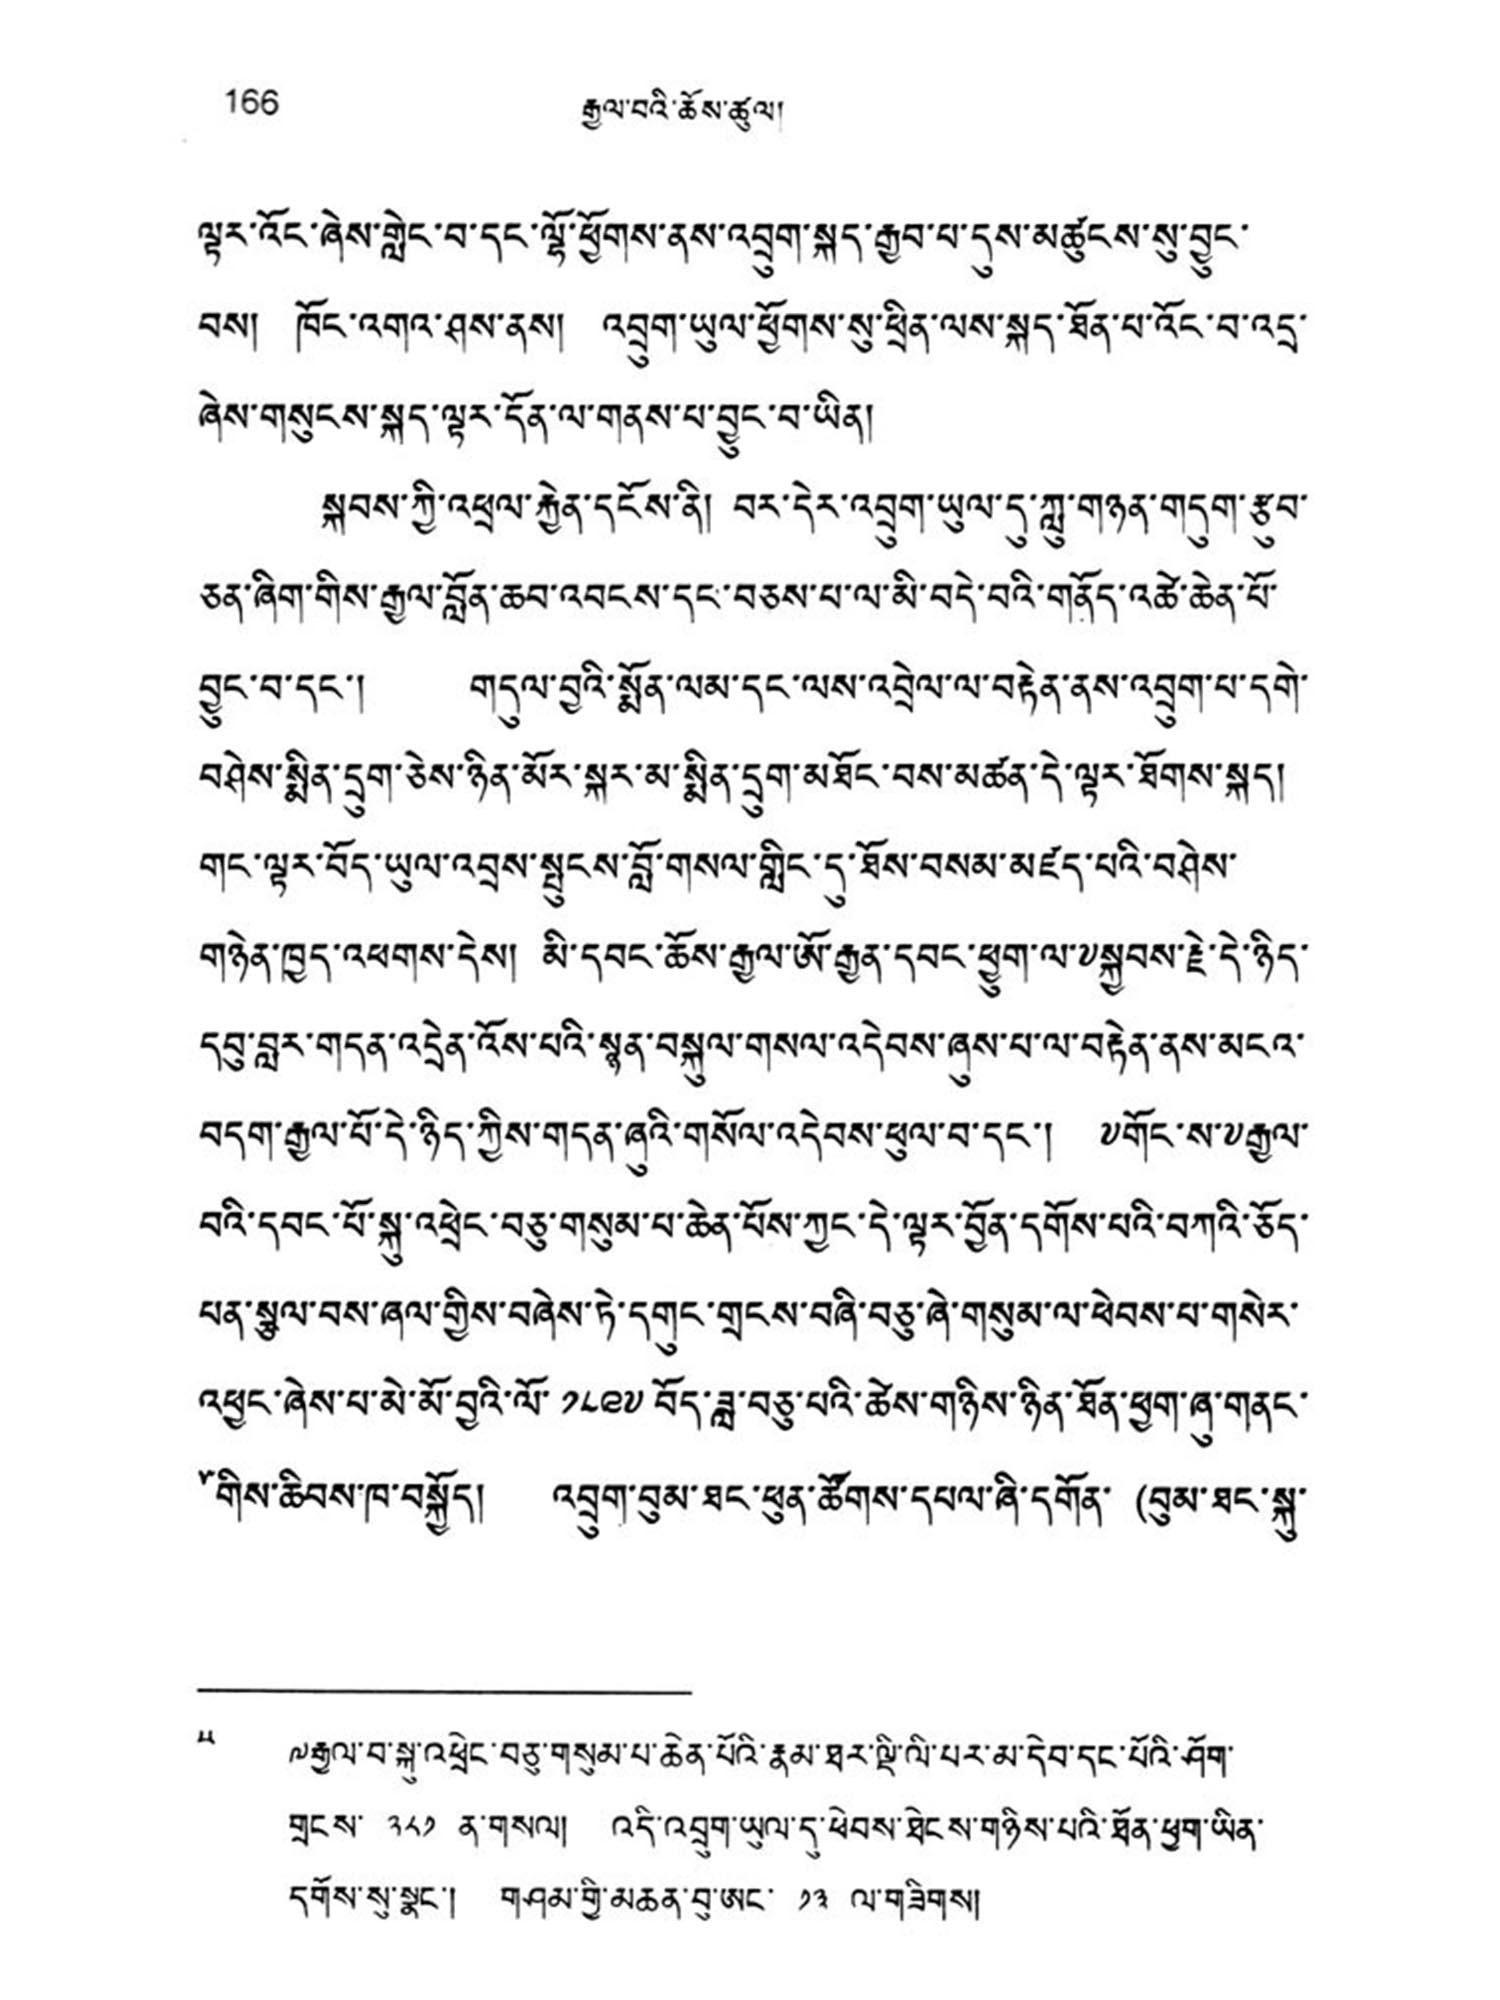 166 རྒྱལ་བའི་ཆོས་ཚུལ།
ལྟར་འོང་ཞེས་གླེང་བ་དང་ལྷོ་ཕྱོགས་ནས་འབྲུག་སྐད་རྒྱབ་པ་དུས་མཚུངས་སུ་བྱུང་
བས། ཁོང་འགའ་ཤས་ནས། འབྲུག་ཡུལ་ཕྱོགས་སུ་ཕྲིན་ལས་སྐད་ཐོན་པ་འོང་བ་འདྲ་
ཞེས་གསུངས་སྐད་ལྟར་དོན་ལ་གནས་པ་བྱུང་བ་ཡིན།
སྐབས་ཀྱི་འཕྲལ་རྐྱེན་དངོས་ནི། བར་དེར་འབྲུག་ཡུལ་དུ་ཀླུ་གཉན་གདུག་རྩུབ་
ཅན་ཞིག་གིས་རྒྱལ་བློན་ཆབ་འབངས་དང་བཅས་པ་ལ་མི་བདེ་བའི་གནོད་འཚེ་ཆེན་པོ་
བྱུང་བ་དང་། གདུལ་བྱའི་སྨོན་ལམ་དང་ལས་འབྲེལ་ལ་བརྟེན་ནས་འབྲུག་པ་དགེ་
བཤེས་སྨིན་དྲུག་ཅེས་ཉིན་མོར་སྐར་མ་སྨིན་དྲུག་མཐོང་བས་མཚན་དེ་ལྟར་ཐོགས་སྐད།
གང་ལྟར་བོད་ཡུལ་འབྲས་སྤུངས་བློ་གསལ་གླིང་དུ་ཐོས་བསམ་མཛད་པའི་བཤེས་
གཉེན་ཁྱད་འཕགས་དེས། མི་དབང་ཆོས་རྒྱལ་ཨོ་རྒྱན་དབང་ཕྱུག་ལ་༧སྐྱབས་རྗེ་དེ་ཉིད་
དབུ་བླར་གདན་འདྲེན་འོས་པའི་སྙན་བསྐུལ་གསལ་འདེབས་ཞུས་པ་ལ་བརྟེན་ནས་མངའ་
བདག་རྒྱལ་པོ་དེ་ཉིད་ཀྱིས་གདན་ཞུའི་གསོལ་འདེབས་ཕུལ་བ་དང་། ༧གོང་ས་༧རྒྱལ་
བའི་དབང་པོ་སྐུ་འཕྲེང་བཅུ་གསུམ་པ་ཆེན་པོས་ཀྱང་དེ་ལྟར་བྱོན་དགོས་པའི་བཀའི་ཅོད་
པན་སྩལ་བས་ཞལ་གྱིས་བཞེས་ཏེ་དགུང་གྲངས་བཞི་བཅུ་ཞེ་གསུམ་ལ་ཕེབས་པ་གསེར་
འཕྱང་ཞེས་པ་མེ་མོ་བྱའི་ལོ་ ༡༨༩༧ བོད་ཟླ་བཅུ་པའི་ཚེས་གཉིས་ཉིན་ཐོན་ཕྱག་ཞུ་གནང་
༥གིས་ཆིབས་ཁ་བསྐྱོད། འབྲུག་བུམ་ཐང་ཕུན་ཚོགས་དཔལ་ཞི་དགོན་ (བུམ་ཐང་སྐུ་
༥ ༧རྒྱལ་བ་སྐུ་འཕྲེང་བཅུ་གསུམ་པ་ཆེན་པོའི་རྣམ་ཐར་ལྡི་ལི་པར་མ་དེབ་དང་པོའི་ཤོག་
གྲངས་ ༣༨༡ ན་གསལ། འདི་འབྲུག་ཡུལ་དུ་ཕེབས་ཐེངས་གཉིས་པའི་ཐོན་ཕྱག་ཡིན་
དགོས་སུ་སྣང་། གཤམ་གྱི་མཆན་བུ་ཨང་ ༡༣ ལ་གཟིགས།